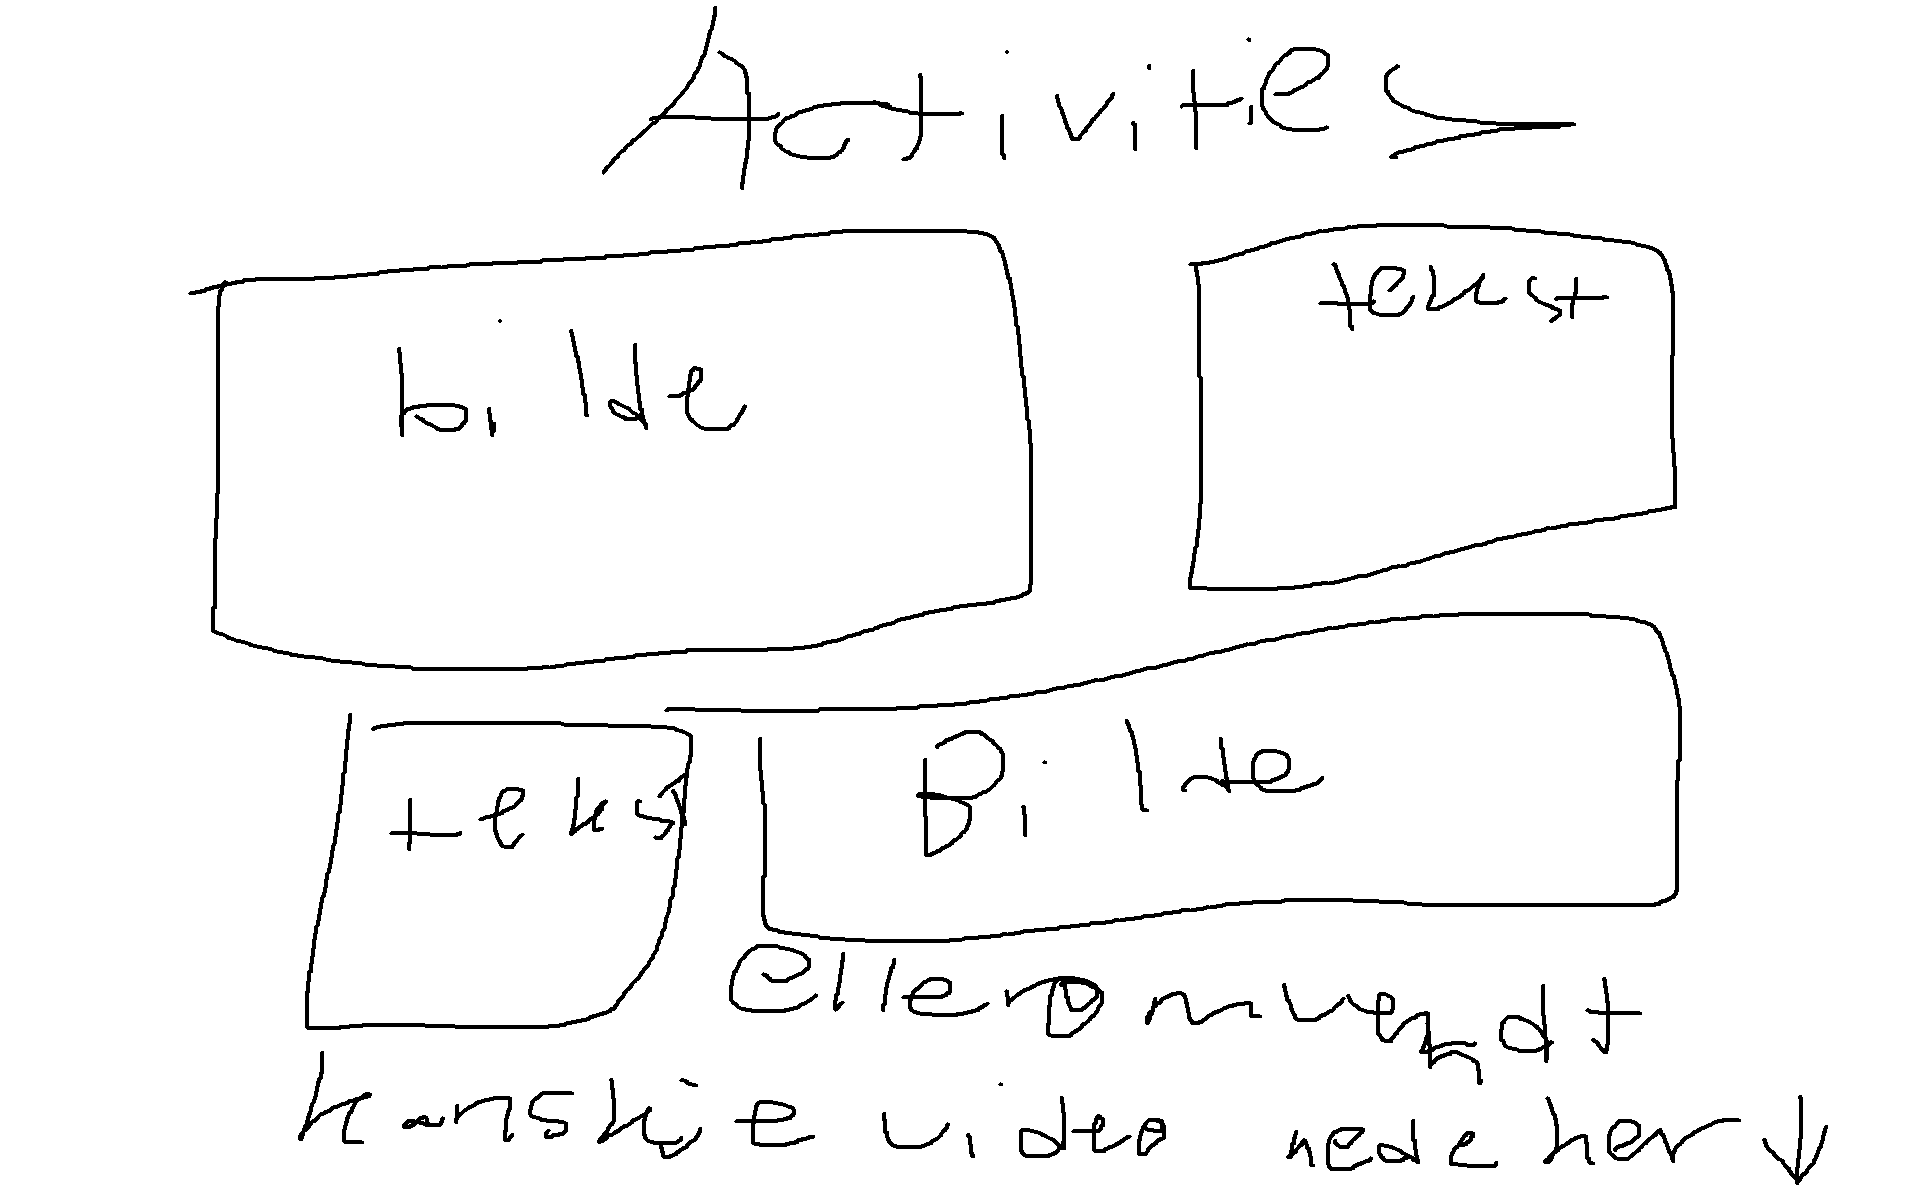 Activities
bilde
tekst
tekst
Bilde
eller omvendt
kanskje video nede her ↓